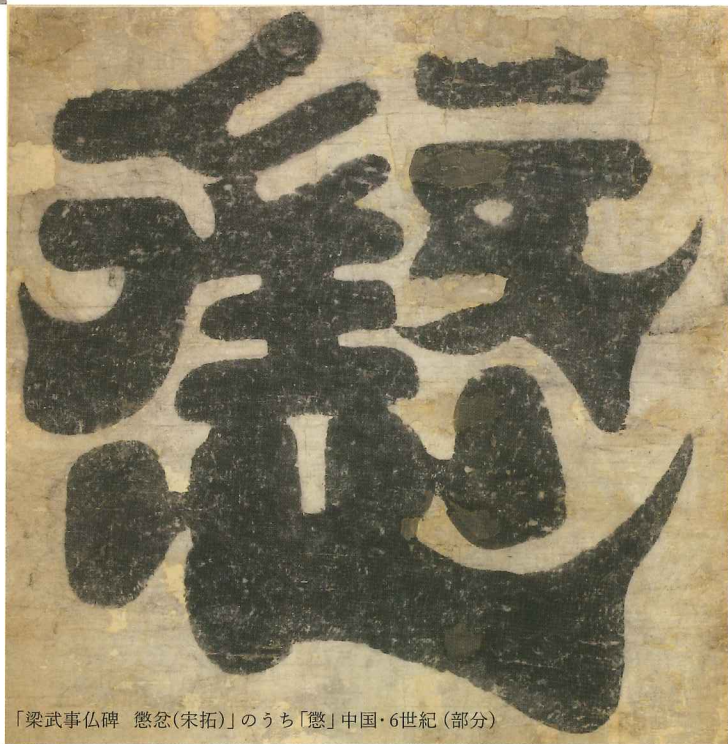 懲
「梁武事仏碑 懲忿(宋拓)」のうち「懲」中国・6世紀(部分)